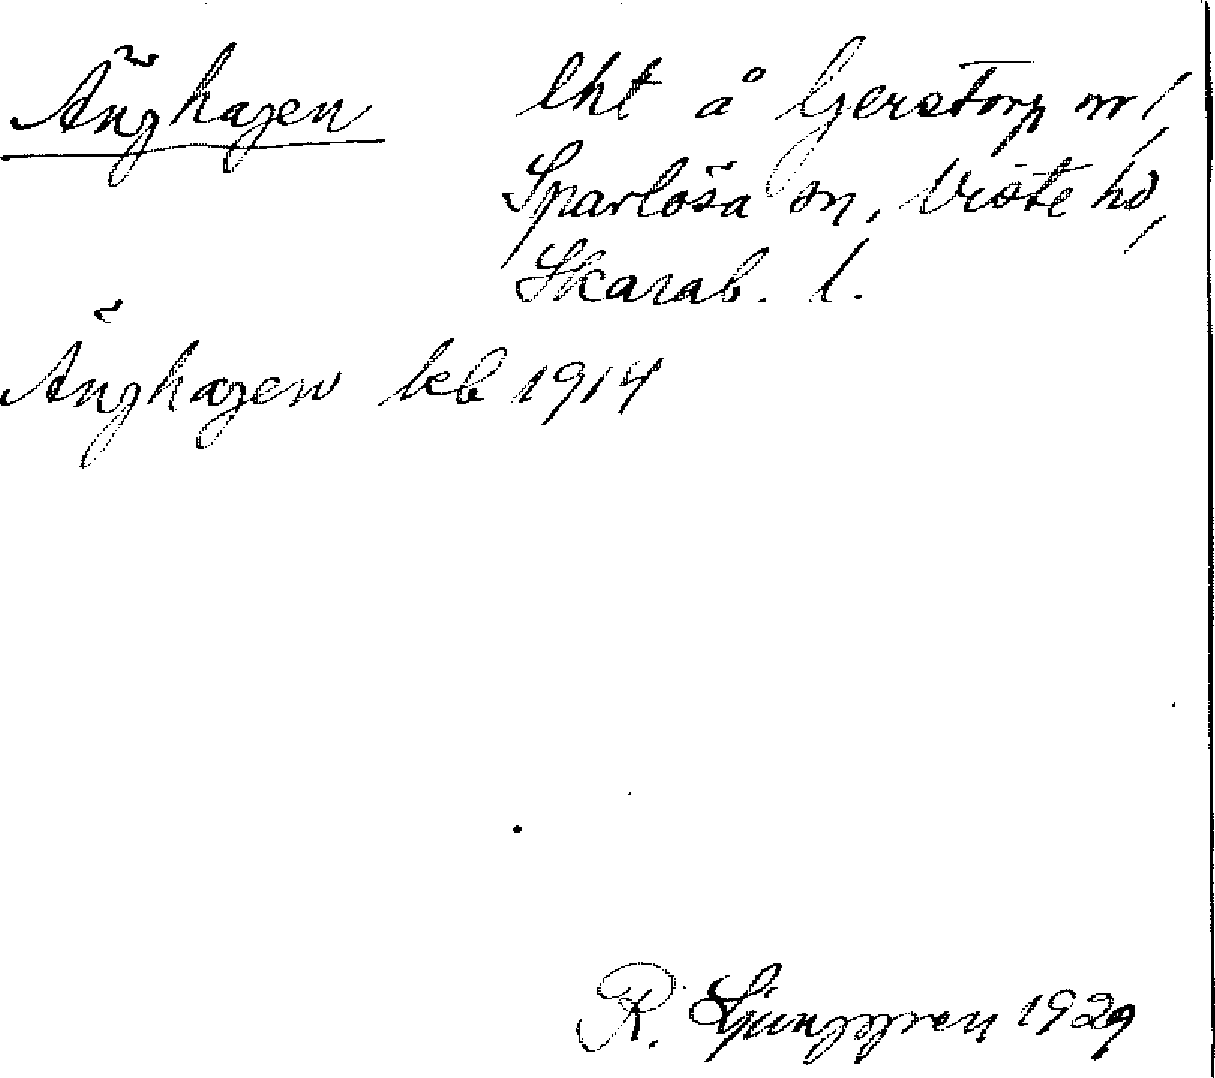 Änghagen lht å Gerstorp nr 1,
Sparlösa sn, Viste hd,
Skarab. l.
Änghagen kb 1914
R. Ljunggren 1929